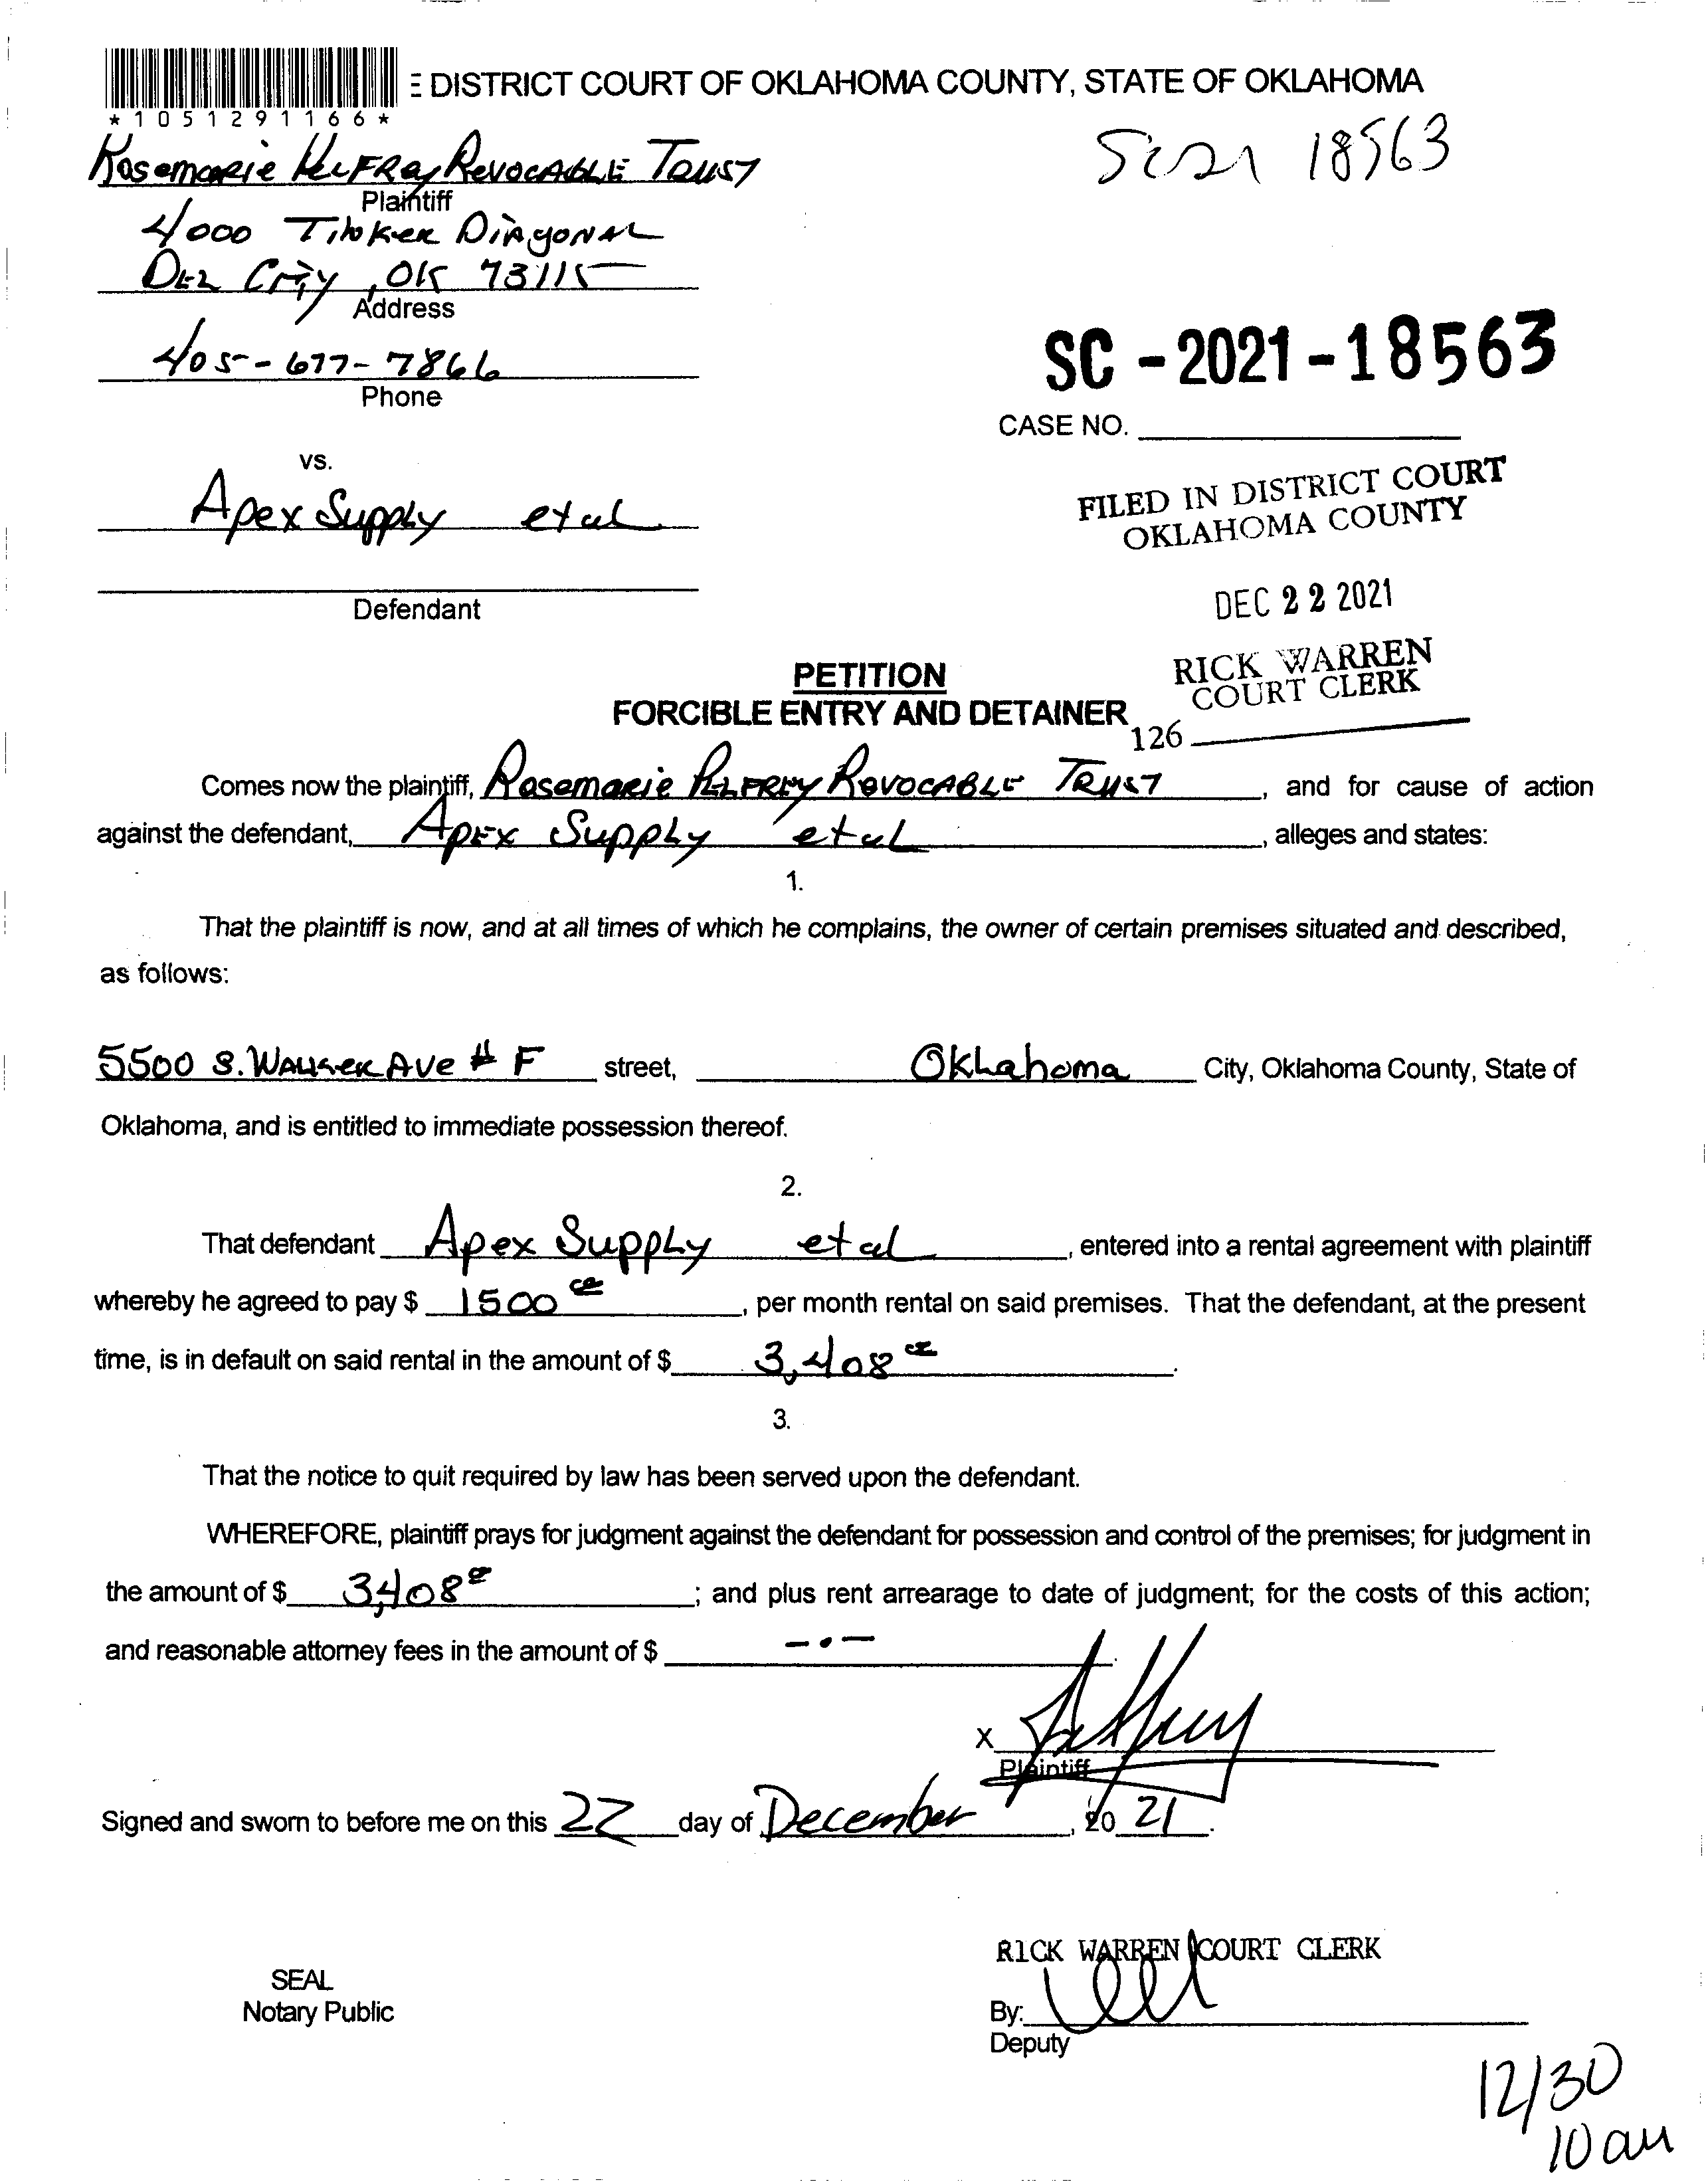 E DISTRICT COURT OF OKLAHOMA COUNTY, STATE OF OKLAHOMA
*1051291166*
SC21 18563
Rosemarie Pelfrey Revocable Trust
Plaintiff
4000 Tinker Diagonal
Del City, OK 73115
Address
405-677-7866
Phone
SC-2021-18563
CASE NO.
vs.
Apex Supply etal
Defendant
FILED IN DISTRICT COURT
OKLAHOMA COUNTY
DEC 22 2021
RICK WARREN
COURT CLERK
126
PETITION
FORCIBLE ENTRY AND DETAINER
Comes now the plaintiff, Rosemarie Pelfrey Revocable Trust, and for cause of action
against the defendant, Apex Supply etal, alleges and states:
1.
That the plaintiff is now, and at all times of which he complains, the owner of certain premises situated and described,
as follows:
5500 S. Walker Ave # F street, Oklahoma City, Oklahoma County, State of
Oklahoma, and is entitled to immediate possession thereof.
2.
That defendant Apex Supply etal, entered into a rental agreement with plaintiff
whereby he agreed to pay $ 1500 00, per month rental on said premises. That the defendant, at the present
time, is in default on said rental in the amount of $ 3,408 00.
3.
That the notice to quit required by law has been served upon the defendant.
WHEREFORE, plaintiff prays for judgment against the defendant for possession and control of the premises; for judgment in
the amount of $ 3,408 00; and plus rent arrearage to date of judgment; for the costs of this action;
and reasonable attorney fees in the amount of $ - • -.
X
Plaintiff
Signed and sworn to before me on this 22 day of December, 20 21.
RICK WARREN COURT CLERK
SEAL
Notary Public
By:
Deputy
12/30
10 am